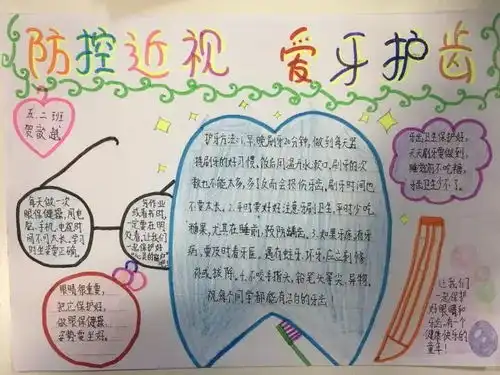 防控近视 爱牙护齿
五.二班
护牙方法:1.早,晚刷牙2分钟,做到每天坚
持刷牙的好习惯,饭后用温开水漱口,刷牙的次
数也不能太多,多了反而会损伤牙齿,刷牙时间也
不要太长。2.平时要好好注意牙刷卫生,平时少吃
糖果,尤其在睡前,预防龋齿。3.如果牙痛,
病,要及时看牙医,遇有蛀牙,坏牙,应立刻修
补或拔除。4.不咬手指头,铅笔头等尖,异物,
祝每个同学都能有洁白的牙齿
牙齿卫生保护好,
天天刷牙要做到,
睡觉前不吃糖,
牙齿卫生少不了。
每天做一次
眼保健操,用电
脑,手机,电视时
间不可太长。学习
时坐姿要正确。
写作业
或看书时,
一定要在明
处看,让我们
一起保护好
心灵的窗户
眼睛很重要,
把它保护好,
做眼保健操,
姿势要坐好。
让我们
一起保护
好眼睛和
牙齿,有一个
健康快乐的
童年!